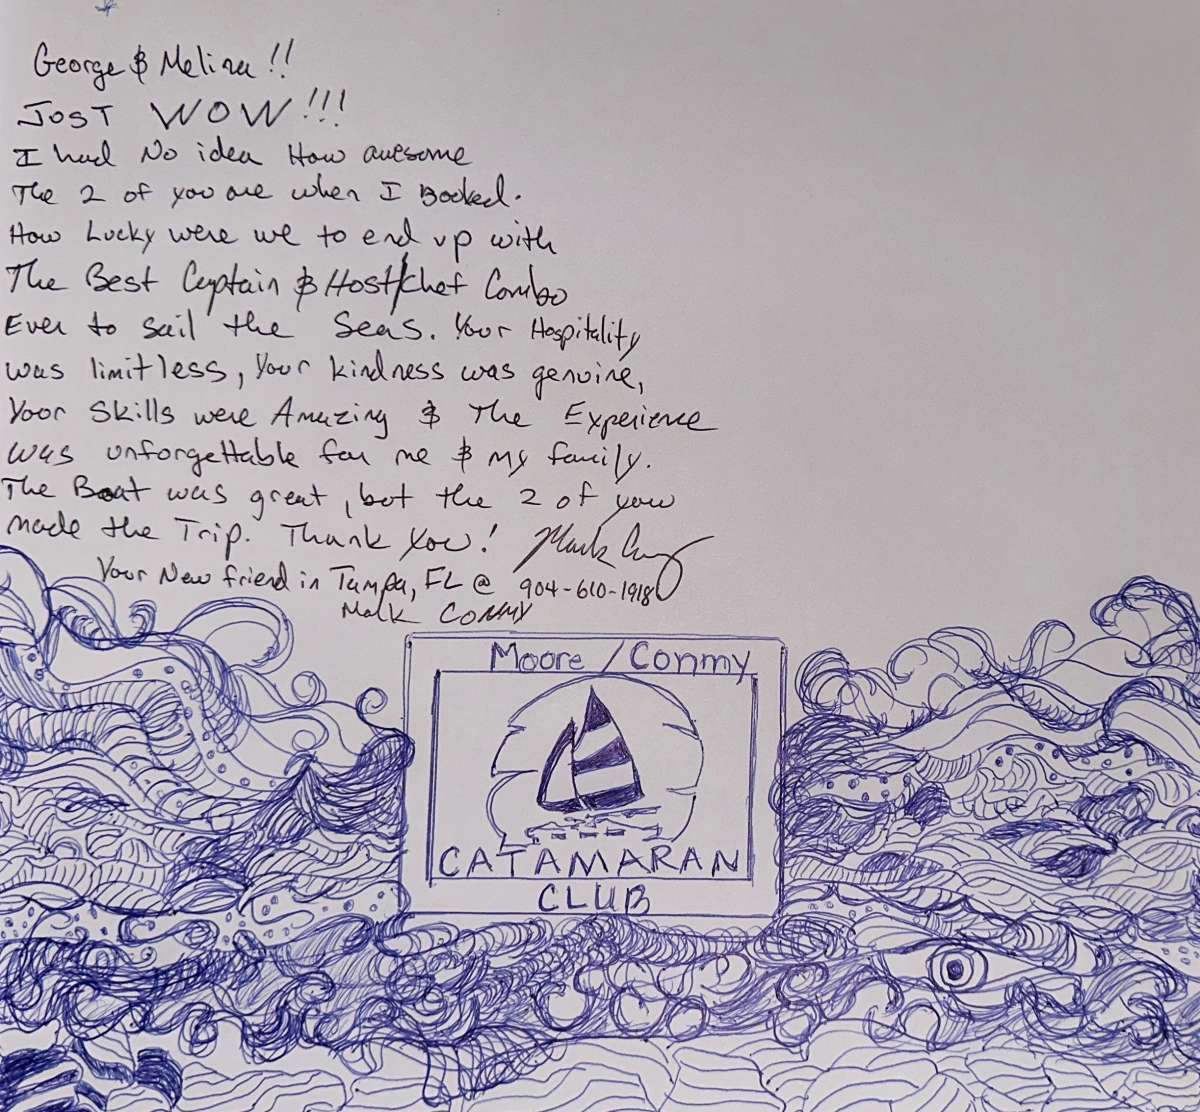 George & Melina!!
JUST WOW!!!
I had No idea How awesome
The 2 of you are when I Booked.
How Lucky were we to end up with
The Best Captain & Host/chef Combo
Ever to sail the Seas. Your Hospitality
was limitless, Your kindness was genuine,
Your Skills were Amazing & The Experience
was unforgettable for me & my family.
The Boat was great, but the 2 of you
made the Trip. Thank You! Mark Conmy
Your New friend in Tampa, FL @ 904-610-1918
Mark Conmy
Moore/Conmy
CATAMARAN
CLUB